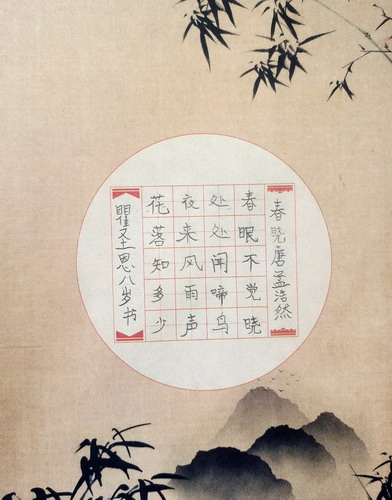 春晓唐孟浩然
春眠不觉晓
处处闻啼鸟
夜来风雨声
花落知多少
瞿圣思八岁书